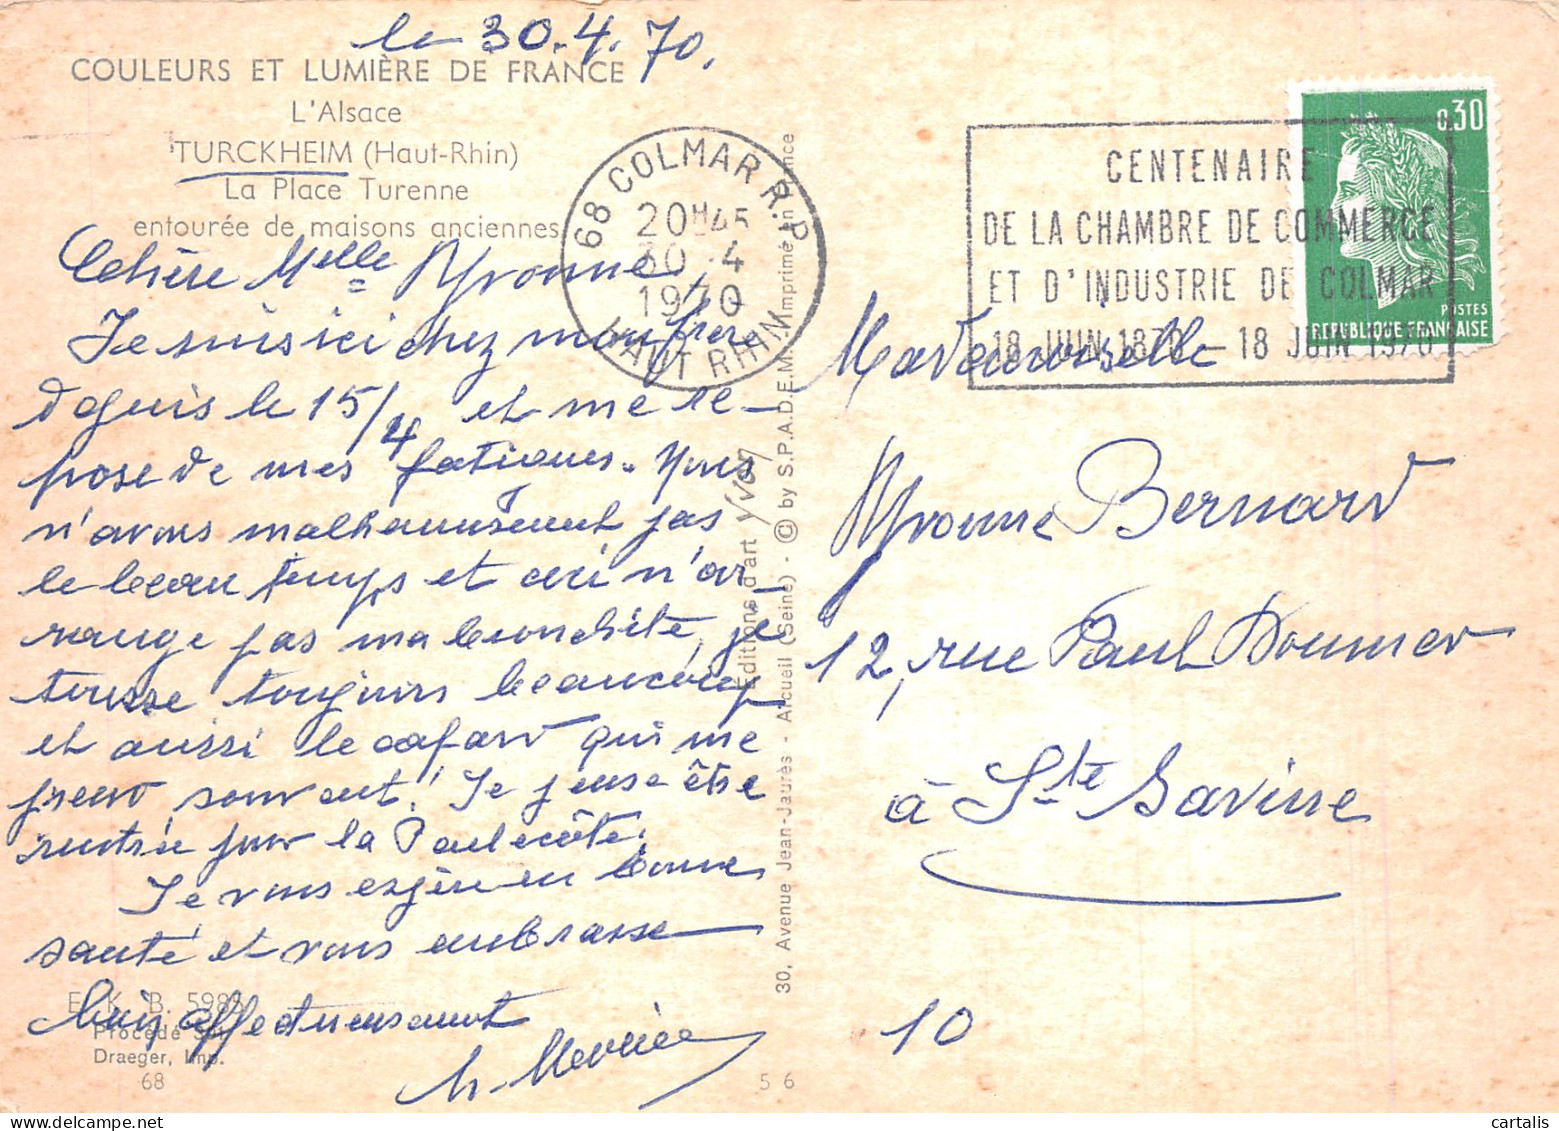 le 30.4.70.
COULEURS ET LUMIÈRE DE FRANCE
L'Alsace
TURCKHEIM (Haut-Rhin)
La Place Turenne
entourée de maisons anciennes
Chère Melle Yvonne,
Je suis ici chez mon frère
depuis le 15/4 et me re-
pose de mes fatigues. Nous
n'avons malheureusement pas
le beau temps et ceci n'ar-
range pas ma bronchite, je
tousse toujours beaucoup
et aussi le cafard qui me
prend souvent! Je pense être
rentrée pour la Pentecôte.
Je vous espère en bonne
santé et vous embrasse
bien affectueusement
E. K. B. 598
Procédé
Draeger, Imp.
68
5 6
68 COLMAR R.P.
20H45
30 -4
1970
HAUT RHIN
Éditions d'art Yvon
30, Avenue Jean-Jaurès - Arcueil (Seine) - © by S.P.A.D.E.M. - Imprimé en France
CENTENAIRE
DE LA CHAMBRE DE COMMERCE
ET D'INDUSTRIE DE COLMAR
18 JUIN 1870 - 18 JUIN 1970
0,30
POSTES
REPUBLIQUE FRANÇAISE
Mademoiselle
Yvonne Bernard
12, rue Paul Doumer
à Ste Savine
10
cartalis